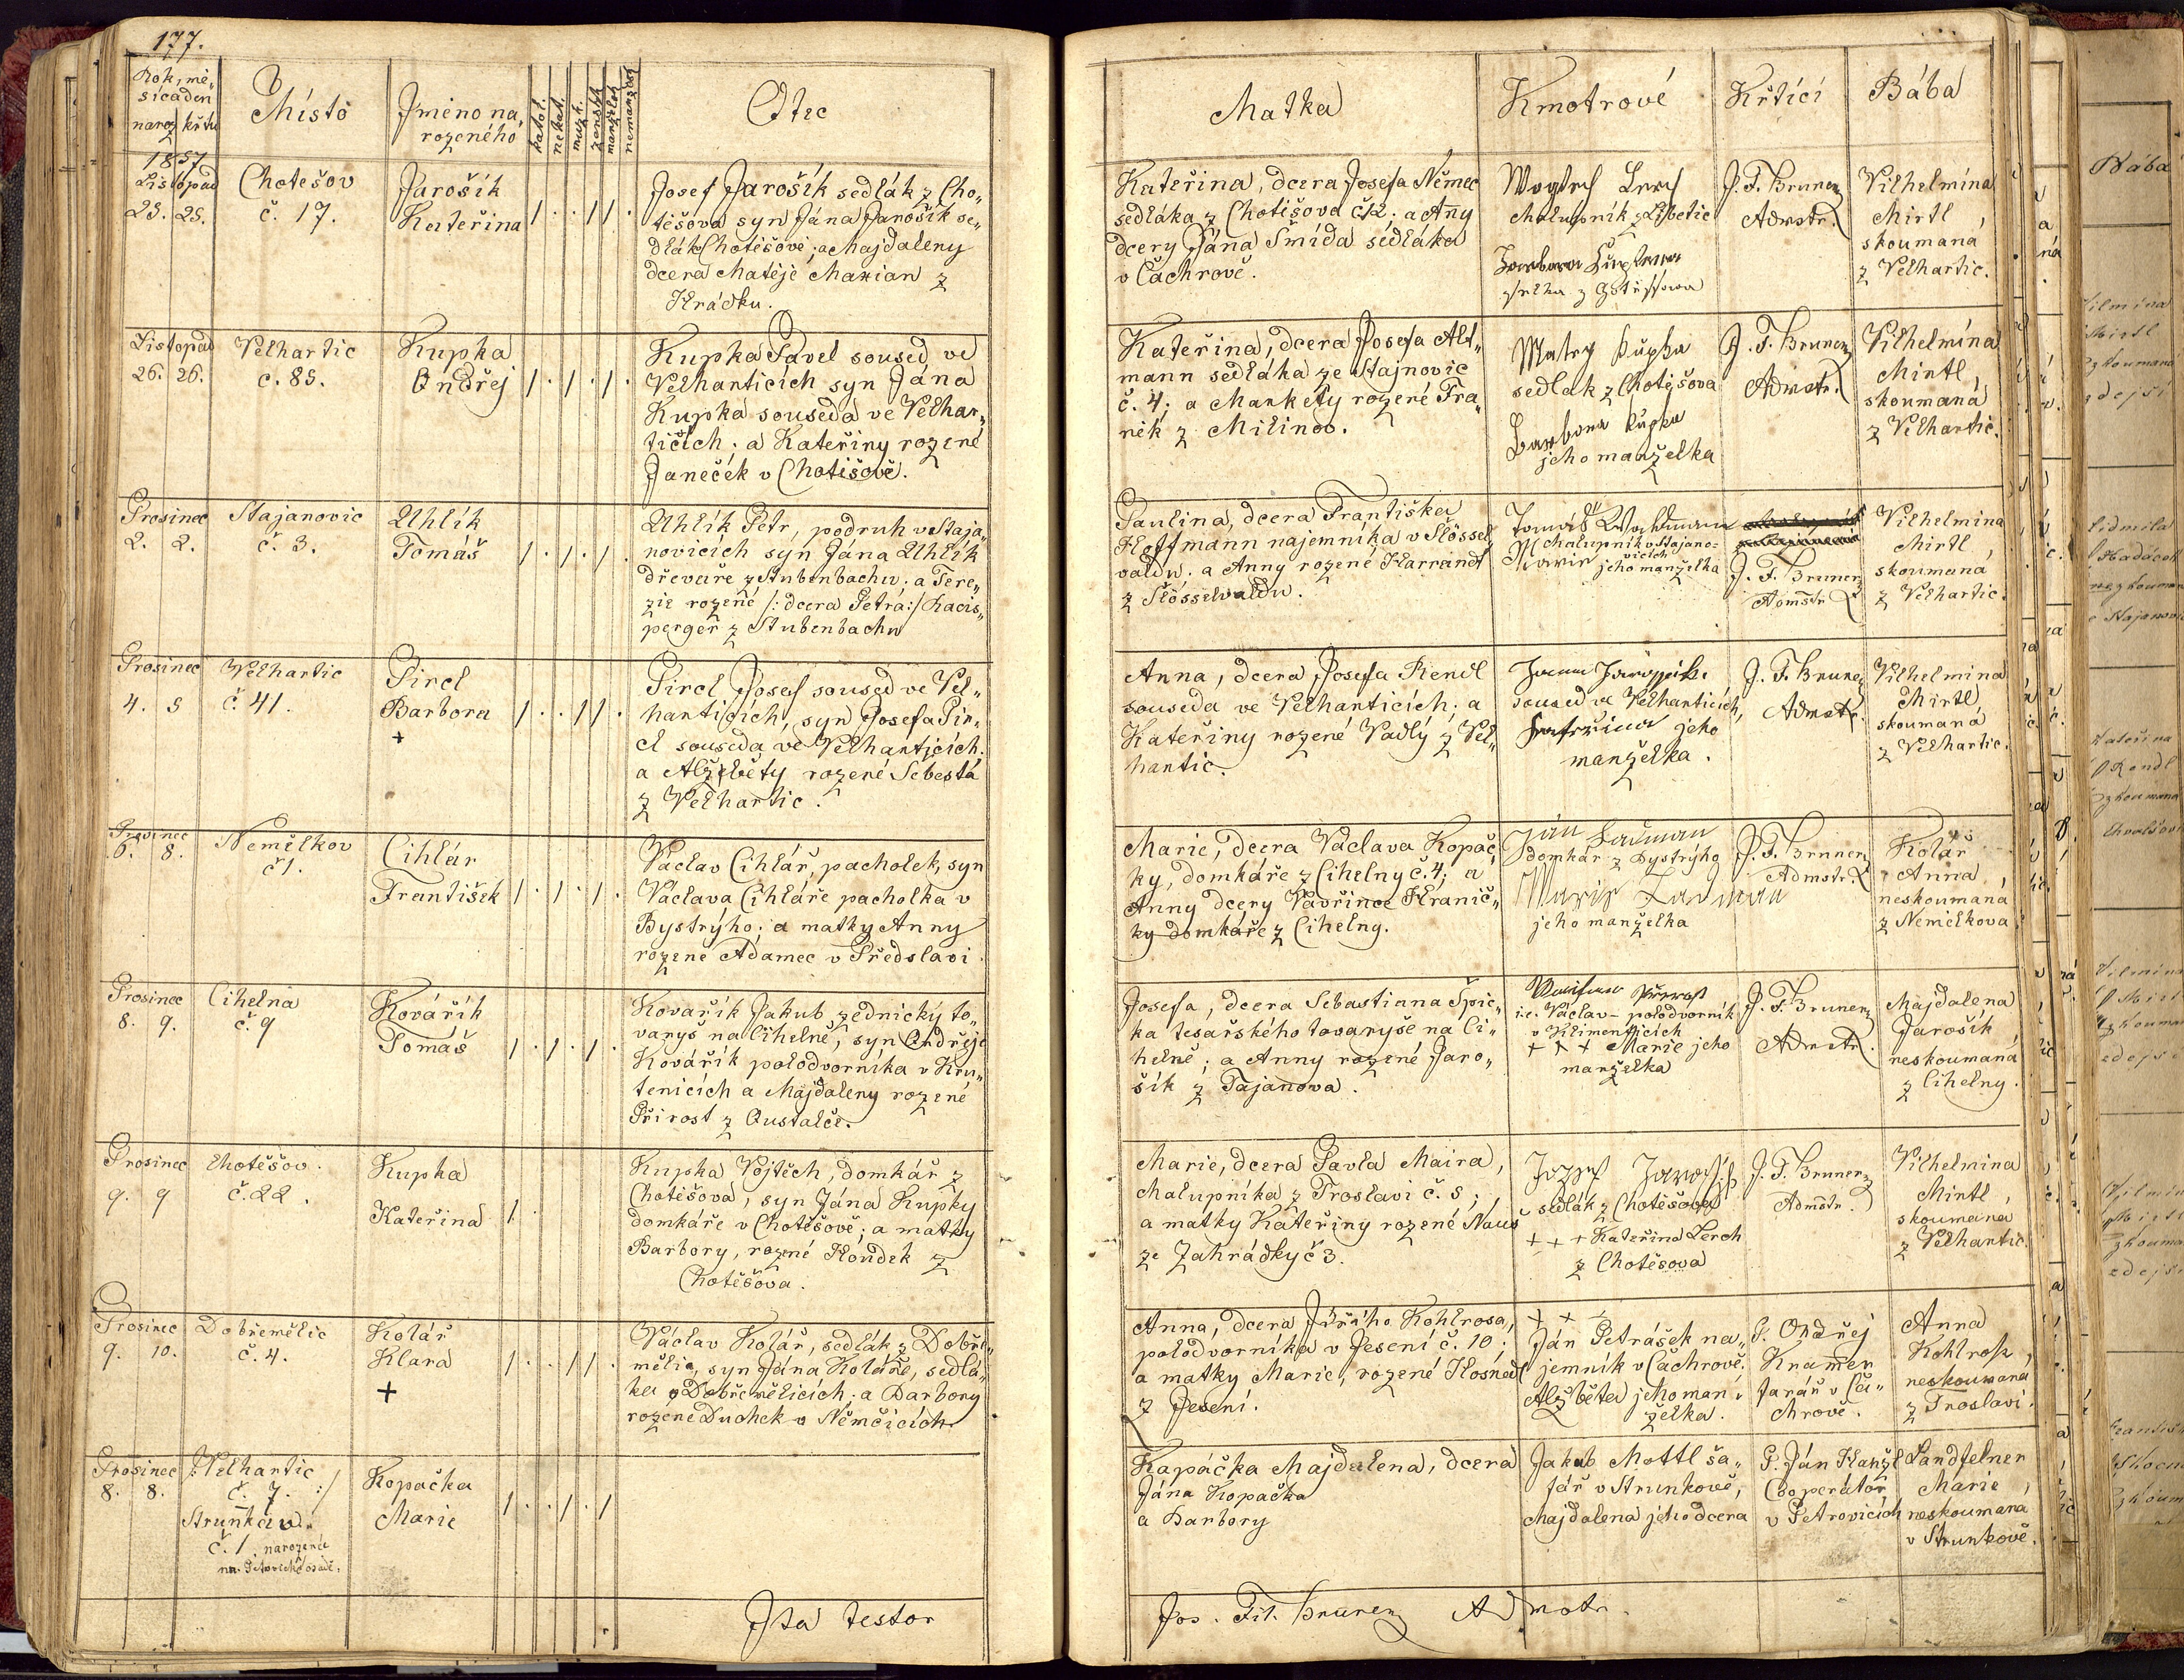 177.
Rok, mě„
síc a den
naroz křtu
Místo
Jméno na„
rozeného
katol.
nekat.
mužk.
žensk.
manželsk
nemanželsk
Otec
1857
Listopad
25. 25.
Chotěšov
č. 17.
Jarošík
Kateřina
Josef Jarošík sedlák z Cho„
těšova syn Jána Jarošík se„
dlák Chotěšově; a Majdaleny
dcera Matěje Marian z
Hrádku.
Listopad
26. 26.
Velhartic
č. 85.
Kupka
Ondřej
Kupka Pavel soused ve
Velharticích syn Jána
Kupka souseda ve Velhar„
ticích; a Kateřiny rozené
Janeček v Chotišově.
Prosinec
2. 2.
Stajanovic
č. 3.
Uhlík
Tomáš
Uhlík Petr, podruh v Staja„
novicích syn Jana Uhlík
dřevaře z Stubenbachu; a Tere„
zie rozené /: dcera Petra :/ Racis„
perger z Stubenbachu
Prosinec
4. 5
Velhartic
č. 41.
Pircl
Barbora
+
Pircl Josef soused ve Vel„
harticích, syn Josefa Pir„
cl souseda ve Velharticích.
a Alžběty rozené Šebesta
z Velhartic.
Prosinec
6. 8.
Nemělkov
č 1.
Cihlár
František
Václav Cihlář, pacholek, syn
Václava Cihláře pacholka v
Bystrýho; a matky Anny
rozené Adamec v Předslavi
Prosinec
8. 9.
Cihelna
č. 9
Kovářík
Tomáš
Kovařík Jakub zednický to„
varyš na Cihelně, syn Ondřeje
Kovářík polodvorníka v Kru„
tenicích a Majdaleny rozené
Přirost z Oustalče.
Prosinec
9. 9
Chotěšov.
č. 22.
Kupka
Kateřina
Kupka Vojtěch, domkář z
Chotěšova, syn Jána Kupky
domkáře v Chotěšově; a matky
Barbory, rozené Houdek z
Chotěšova.
Prosinec
9. 10.
Dobřemělic
č. 4.
Kolář
Klara
+
Václav Kolář, sedlák z Dobře„
mělic, syn Jána Koláře, sedlá„
ka v Dobřemělicích; a Barbory
rozené Duchek v Němčicích
Prosinec
8. 8.
/: Velhartic
č. 7. :/
Strunkau
č. 1. narozené
na Petrovické osadě.
Kopačka
Marie
Ita testor
Matka
Kmotrové
Křtící
Bába
Kateřina, dcera Josefa Němec
sedláka z Chotěšova č 12; a Anny
dcery Jána Šmída sedláka
v Čachrově.
Chalupník z Libetic
Barbora
J. F. Bruner
Admstr.
Vilhelmína
Mirtl,
skoumaná
z Velhartic.
Kateřina, dcera Josefa Alt„
mann sedláka ze Stajnovic
č. 4; a Markéty rozené Fra„
něk z Milínov.
Matěj Kupka
sedlák z Chotěšova
Barbora Kupka
jeho manželka
J. F. Bruner
Admstr.
Vilhelmína
Mirtl,
skoumaná
z Velhartic.
Paulina, dcera Františka
Hoffmann najemníka v Stössel„
valdu; a Anny rozené Harrandt
z Stösselvaldu.
Tomáš
Chalupník v Stajano=
vicích
Marie jeho manželka
J. F. Bruner
Admstr.
Vilhelmina
Mirtl,
skoumaná
z Velhartic.
Anna, dcera Josefa Rendl
souseda ve Velharticích; a
Kateřiny rozené Vadlý z Vel„
hartic.
soused ve Velharticích,
Kateřina jeho
manželka.
J. F. Bruner
Admstr.
Vilhelmina
Mirtl,
skoumaná
z Velhartic.
Marie, dcera Václava Kopač„
ky, domkáře z Cihelny č. 4; a
Anny dcery Vavřince Hranič„
ky domkáře z Cihelny.
Ján Lauman
domkář z Bystrýho
Marie Lauman
jeho manželka
J. F. Bruner
Admstr.
Kolář
Anna,
neskoumaná
z Nemelkova
Josefa, dcera Sebastiana Špic„
ka tesařského tovaryše na Ci„
helně; a Anny rozené Jaro„
šík z Tajanova.
i.e. Václav – polodvorník
v Klimenticích
+ + + Marie jeho
manželka
J. F. Bruner
Admstr.
Majdalena
Jarošík,
neskoumaná
z Cihelny.
Marie, dcera Pavla Maira,
Chalupníka z Troslavi č. 5;
a matky Kateřiny rozené Nauš
ze Zahrádky č 3.
Jozef Jarošík
sedlák z Chotěšova
+ + + Kateřina Lerch
z Chotěšova
J. F. Bruner
Admstr.
Vilhelmina
Mirtl,
skoumaná
z Velhartic.
Anna, dcera Jiřího Kohlrosa,
polodvorníka v Jesení č. 10;
a matky Marie, rozené Hosnedl
z Jesení.
+ + +
Ján Petrášek na„
jemník v Čachrově.
Alžběta jeho man„
želka.
P. Ondřej
Kramer
farář v Ča„
chrově.
Anna
Kohlros,
neskoumana
z Troslavi.
Kapáčka Majdalena, dcera
Jána Kopačka
a Barbory
Jakub Mottl ša„
fář v Strunkově,
Majdalena jeho dcera
P. Ján Hanžl
Cooperátor
v Petrovicích
Landfelner
Marie,
neskoumana
v Strunkově.
Jos. Fil. Bruner Admstr.